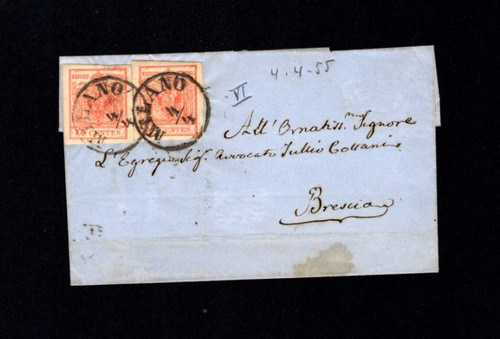 4.4.55
VI
MILANO
4/4
15 CENTES
MILANO
4/4
CENTES
All' Ornatiss.mo Signore
L'Egregio Sig. Avvocato Tullio
Brescia